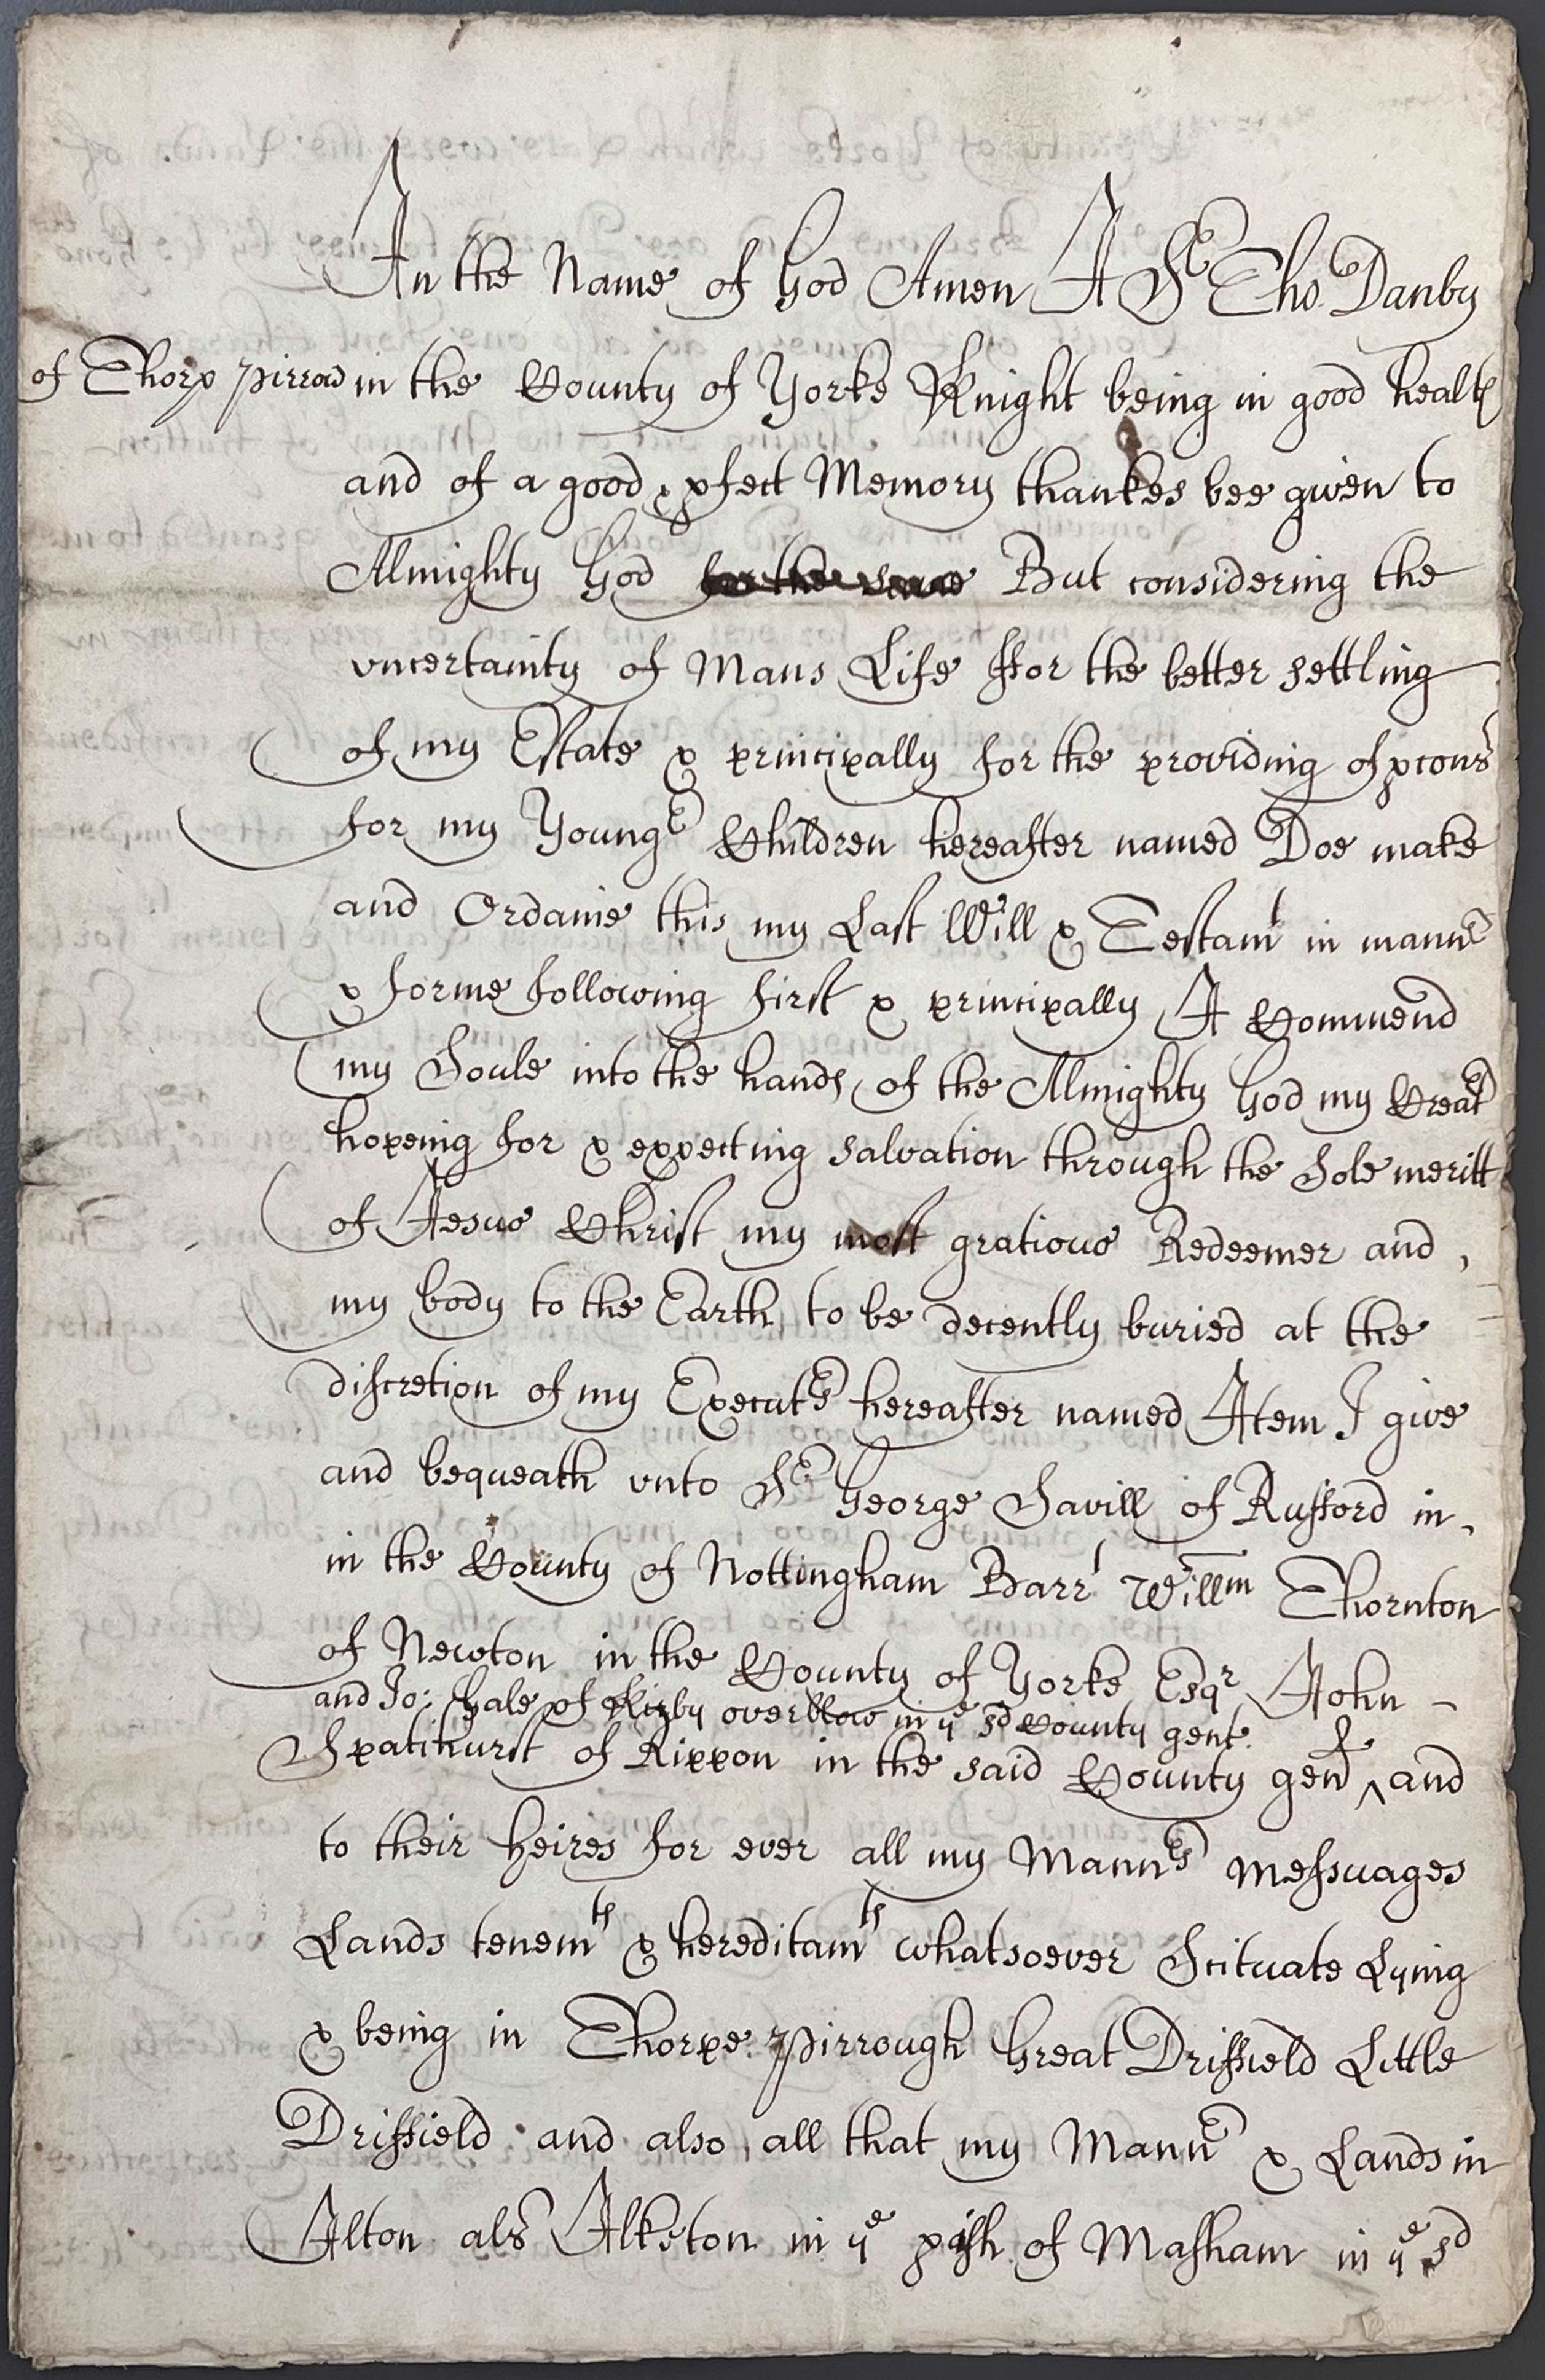 In the Name of God Amen I Sr Tho: Danby
of Thorp pirrow in the County of Yorke Knight being in good health
and of a good & pfect Memory thankes bee given to
Almighty God for the same But considering the
vncertainty of Mans Life ffor the better settling
of my Estate & principally for the providing of porcons
for my Youngr Children hereafter named Doe make
and Ordaine this my Last Will & Testamt in mannr
& forme following first & principally I Commend
my Soule into the hands of the Almighty God my Creatr
hopeing for & expecting salvation through the Sole meritt
of Jesus Christ my most gratious Redeemer and
my body to the Earth to be decently buried at the
discretion of my Executrs hereafter named Item I give
and bequeath vnto Sr George Savill of Rufford in
in the County of Nottingham Barrt Willm Thornton
of Newton in the County of Yorke Esqr John
and Jo: Gale of over blow in ye sd County gent.
Spatihurst of Rippon in the said County gent ^ and
to their heires for ever all my Mannrs Messuages
Lands tenemts & hereditamts whatsoever Scituate Lying
& being in Thorpe Pirrough Great Driffield Little
Driffield and also all that my Mannr & Lands in
Ilton als Ilkston in ye pish of Masham in ye sd